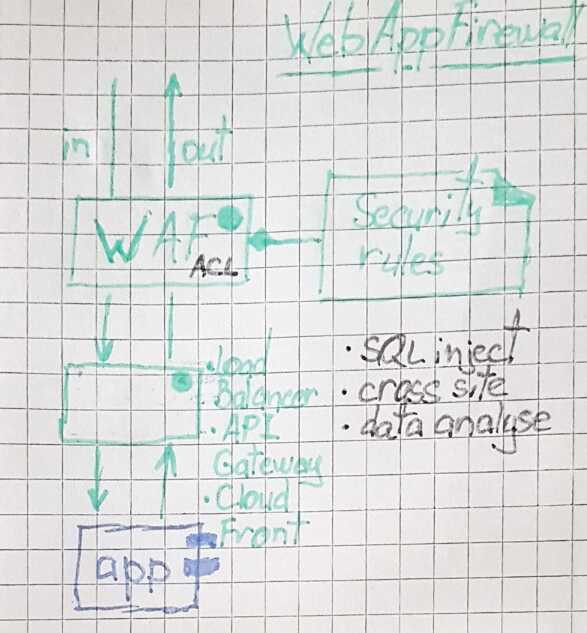 Web App Firewall
in
out
WAF
ACL
Security
rules
• Load
Balancer
• API
Gateway
• Cloud
Front
• SQL inject
• cross site
• data analyse
app